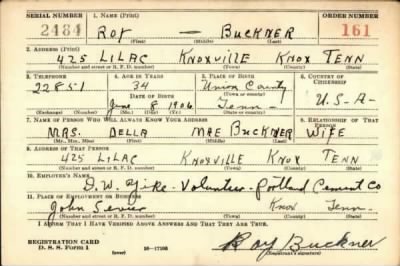 SERIAL NUMBER 1. NAME (Print) ORDER NUMBER
2484 ROY - BUCKNER 161
(First) (Middle) (Last)
2. ADDRESS (Print)
425 LILAC KNOXVILLE KNOX TENN
(Number and street or R. F. D. number) (Town) (County) (State)
3. TELEPHONE 4. AGE IN YEARS 5. PLACE OF BIRTH 6. COUNTRY OF CITIZENSHIP
22851 34 Union County
DATE OF BIRTH (Town or county)
June 8 1906 Tenn- U.S-A-
(Exchange) (Number) (Mo.) (Day) (Yr.) (State or country)
7. NAME OF PERSON WHO WILL ALWAYS KNOW YOUR ADDRESS 8. RELATIONSHIP OF THAT PERSON
MRS. DELLA MAE BUCKNER WIFE
(Mr., Mrs., Miss) (First) (Middle) (Last)
9. ADDRESS OF THAT PERSON
425 LILAC KNOXVILLE KNOX TENN
(Number and street or R. F. D. number) (Town) (County) (State)
10. EMPLOYER'S NAME
D.W. - Volunteer - Portland Cement Co
11. PLACE OF EMPLOYMENT OR BUSINESS
John Sevier Knox Tenn-
(Number and street or R. F. D. number) (Town) (County) (State)
I AFFIRM THAT I HAVE VERIFIED ABOVE ANSWERS AND THAT THEY ARE TRUE.
REGISTRATION CARD
D. S. S. Form 1 (over) 16-17105 Roy Buckner
(Registrant's signature)